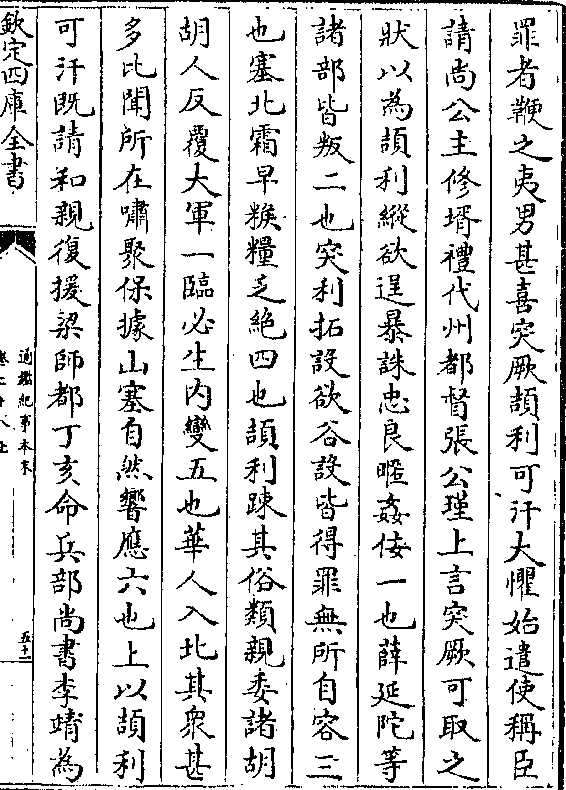 罪者鞭之夷男甚喜突厥頡利可汗大懼始遣使稱臣
請尚公主修壻禮代州都督張公瑾上言突厥可取之
狀以為頡利縱欲逞暴誅忠良暱姦佞一也薛延陀等
諸部皆叛二也突利拓設欲谷設皆得罪無所自容三
也塞北霜早糇糧乏絶四也頡利疎其俗類親委諸胡
胡人反覆大軍一臨必生内變五也華人入北其衆甚
多比聞所在嘯聚保據山塞自然響應六也上以頡利
可汗既請和親復援梁師都丁亥命兵部尚書李靖為
欽定四庫全書
通鑑紀事本末
五十二